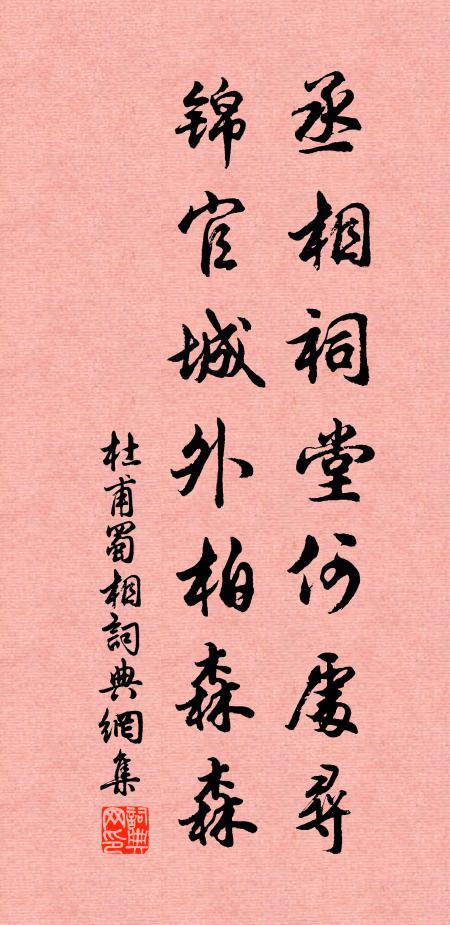 丞相祠堂何處尋
锦官城外柏森森
杜甫蜀相詞典網集
詞典网印